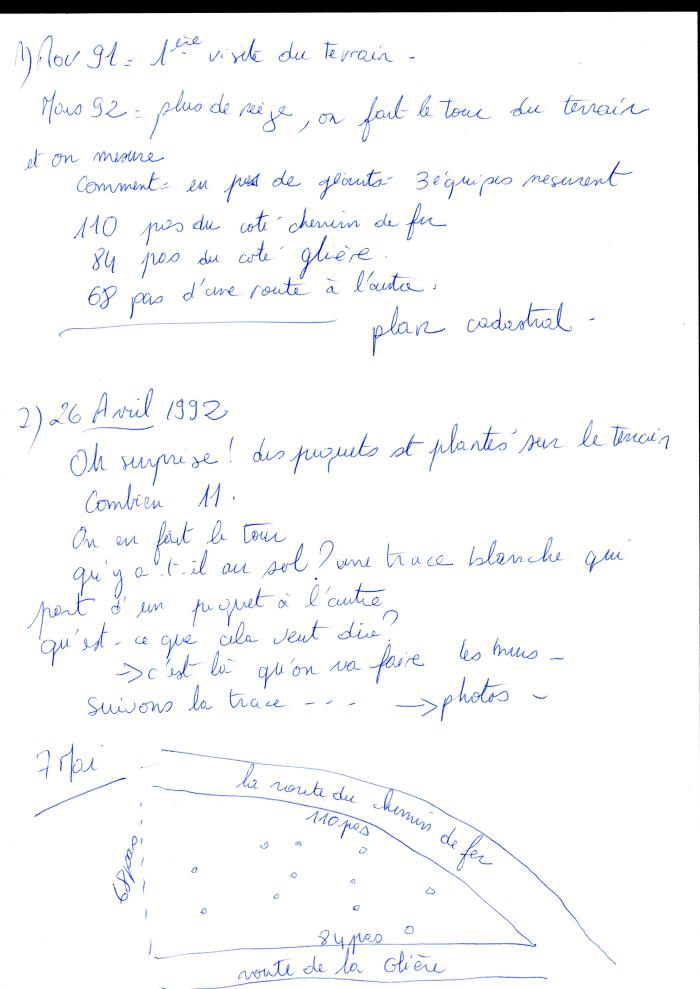 1) Nov 91 = 1ère visite du terrain -
Mars 92 = plus de neige, on fait le tour du terrain
et on mesure
Comment = en pas de géants - 3 équipes mesurent
110 pas du coté chemin de fer
84 pas du coté glière.
68 pas d'une route à l'autre.
plan cadastral -
2) 26 Avril 1992
Oh surprise ! des piquets st plantés sur le terrain
Combien 11.
On en fait le tour
qu'y a-t-il au sol ? une trace blanche qui
part d'un piquet à l'autre
qu'est-ce que cela veut dire ?
→ c'est là qu'on va faire les murs -
Suivons la trace --- → photos -
7 Mai
la route du chemin de fer
110 pas
68 pas
84 pas
route de la Glière